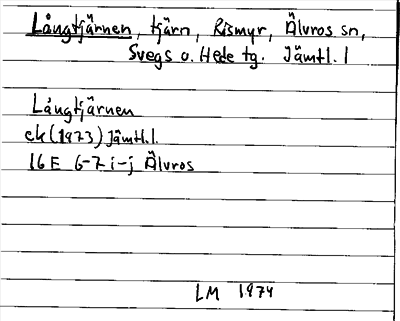 Långtjärnen, tjärn, Rismyr, Älvros sn,
Svegs o. Hede tg. Jämtl. l
Långtjärnen
ek (1973) Jämtl. l.
16 E 6-7 i-j Älvros
LM 1974